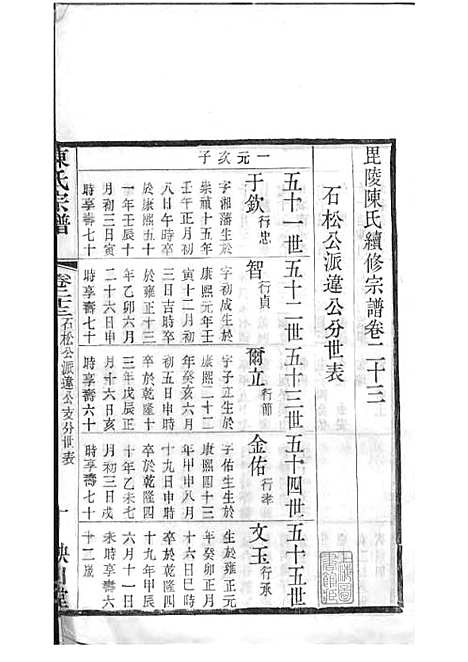 毘陵陳氏續修宗譜卷二十三
石松公派違公分世表
五十一世
五十二世
五十三世
五十四世
五十五世
一元次子
于欽行忠
字湘藩生於
崇禎十五年
八日午時卒
於康熙五十
一年壬辰十
月初三日寅
時享壽七十
智行貞
字初成生於
康熙元年壬
寅十二月初
三日吉時卒
於雍正十三
年乙卯六月
時享壽七十
爾立行節
字子正生於
康熙二十二
年癸亥六月
初五日申時
卒於乾隆十
三年戊辰正
月十六日亥
時享壽六十
金佑行孝
字佑生生於
康熙四十三
十九日申時
卒於乾隆四
十年乙未七
月初三日戌
時享壽七十
文玉行承
生於雍正元
年癸卯正月
十六日巳時
卒於乾隆四
十九年甲辰
六月十一日
未時享壽六
十二歲
陳氏宗譜
卷二十三石松公派違公支分世表
一
映山堂